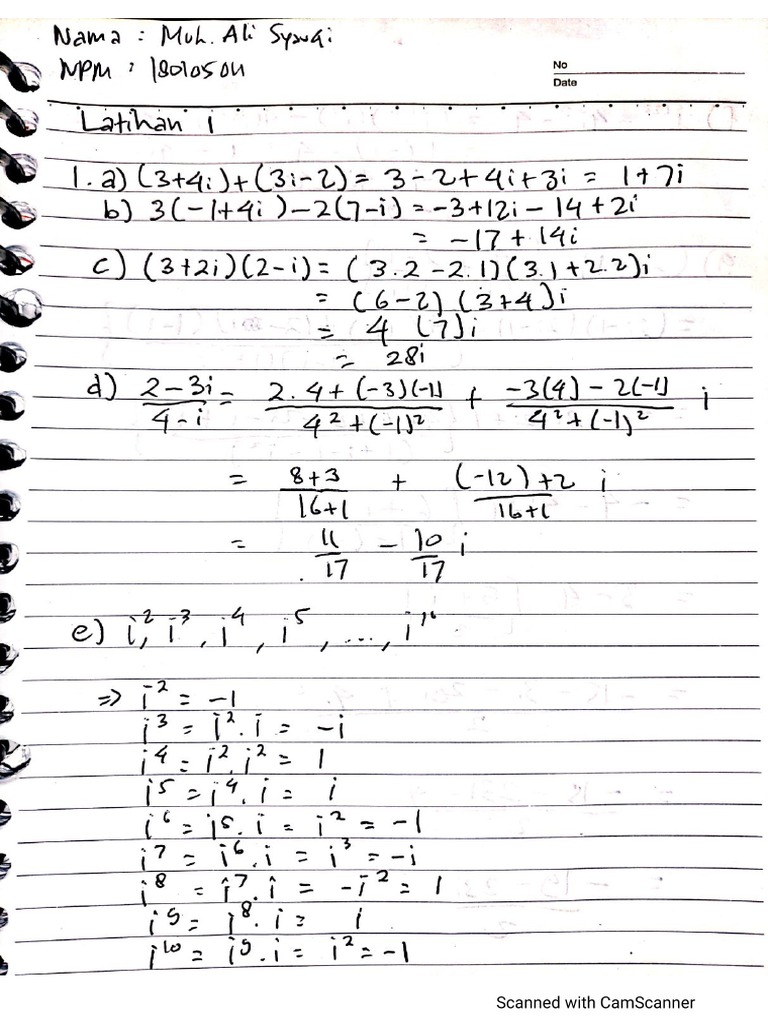 Nama : Muh. Ali Syauqi
NPM : 18010504
No
Date
Latihan 1
1. a) (3+4i)+(3i-2) = 3-2+4i+3i = 1+7i
b) 3(-1+4i)-2(7-i) = -3+12i-14+2i
= -17+14i
c) (3+2i)(2-i) = (3.2-2.1)(3.1+2.2)i
= (6-2)(3+4)i
= 4 (7)i
= 28i
d) (2-3i)/(4-i) = (2.4+(-3)(-1))/(4²+(-1)²) + (-3(4)-2(-1))/(4²+(-1)²) i
= (8+3)/(16+1) + ((-12)+2)/(16+1) i
= 11/17 - 10/17 i
e) i², i³, i⁴, i⁵, ..., i¹⁰
=> i² = -1
i³ = i².i = -i
i⁴ = i².i² = 1
i⁵ = i⁴.i = i
i⁶ = i⁵.i = i² = -1
i⁷ = i⁶.i = i³ = -i
i⁸ = i⁷.i = -i² = 1
i⁹ = i⁸.i = i
i¹⁰ = i⁹.i = i² = -1
Scanned with CamScanner